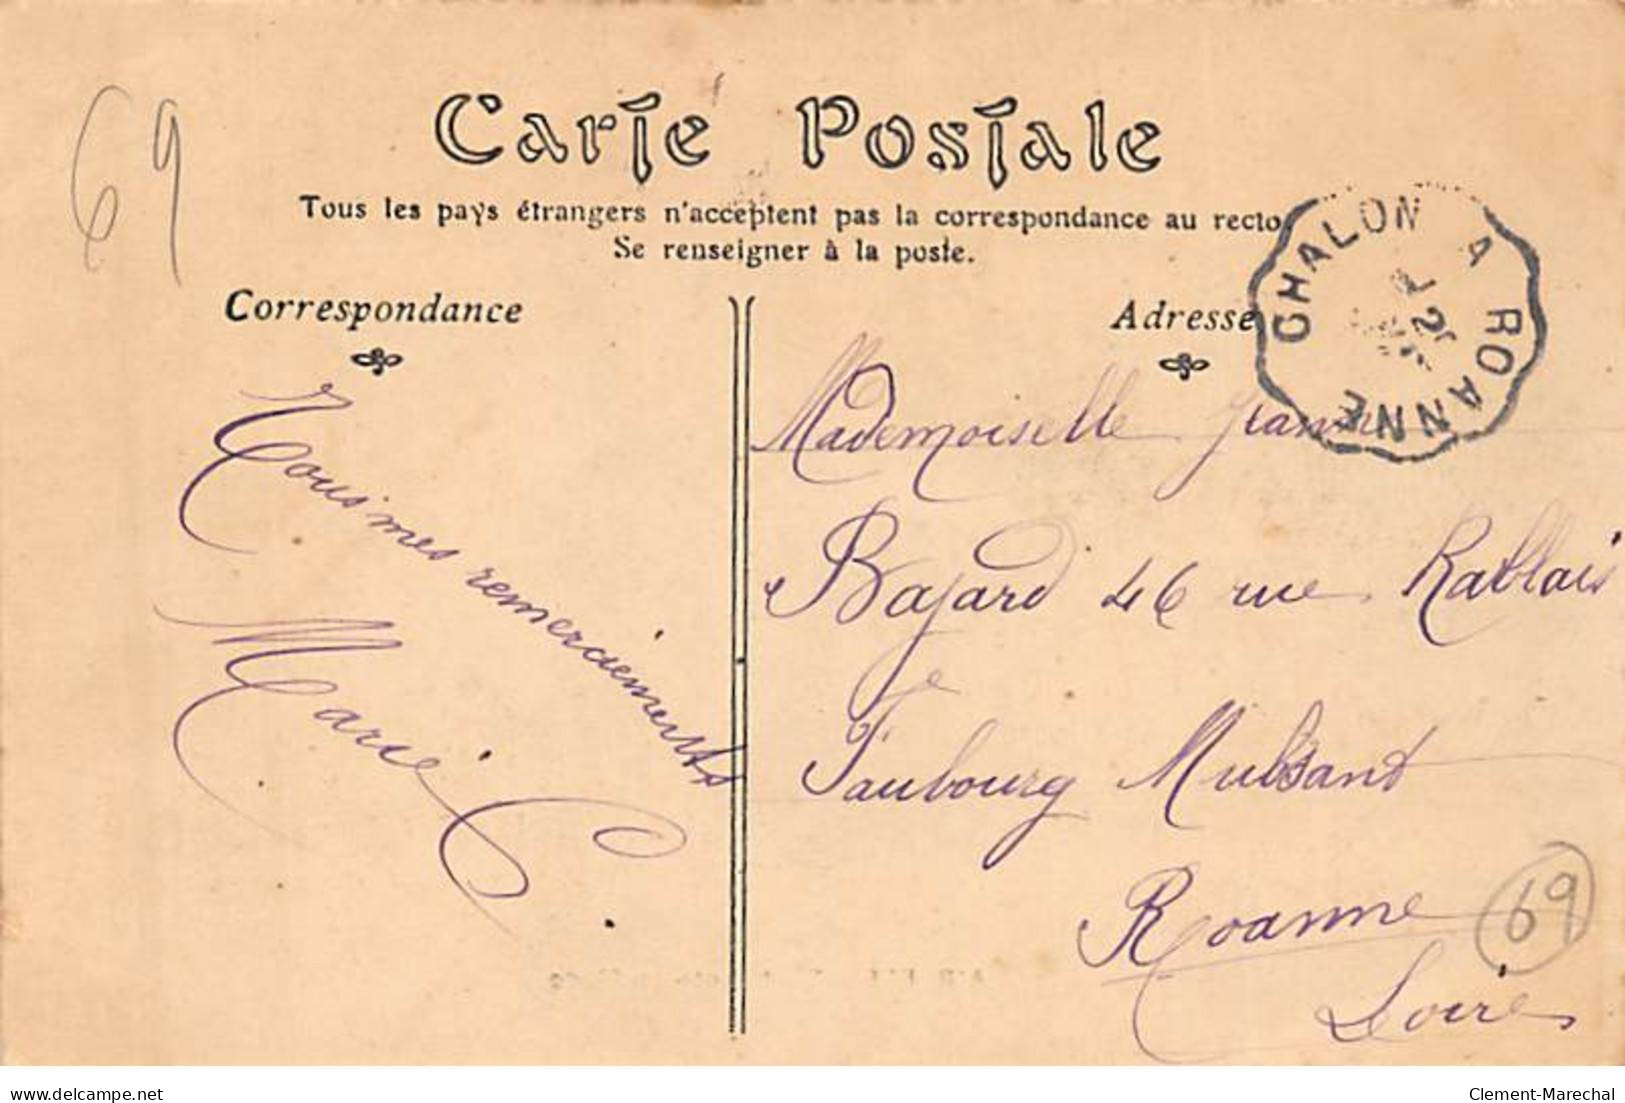 69
Carte Postale
Tous les pays étrangers n'acceptent pas la correspondance au recto.
Se renseigner à la poste.
Correspondance
Adresse
CHALON A ROANNE
Tous mes remerciements
Marie C.
Mademoiselle Jeanne
Bajard 46 rue Rablais
Faubourg Mulsant
Roanne
Loire
69
delcampe.net
Clement-Marechal